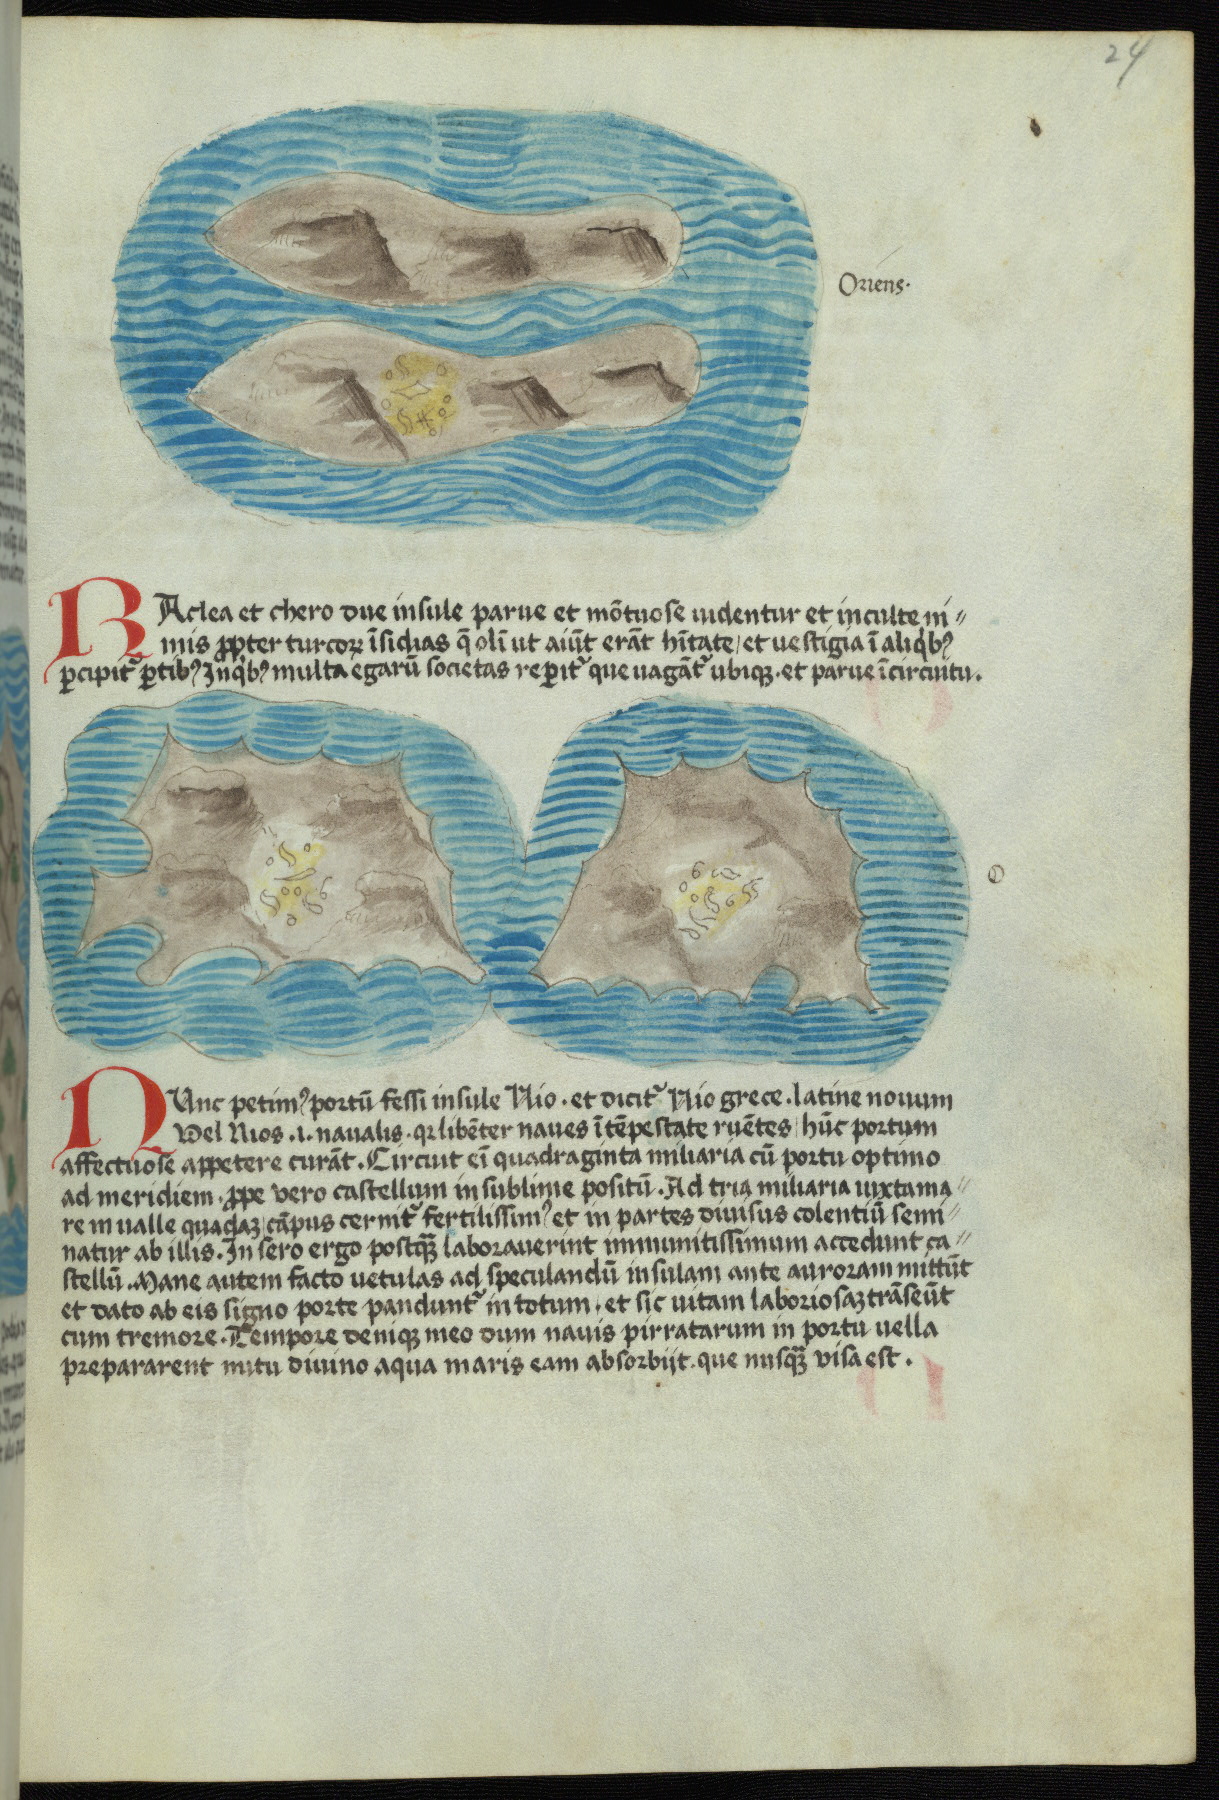 24
Oriens·
RAclea et chero due insule parue et mõtuose uidentur et inculte ni〃
mis ꝓpter turcoꝝ ĩsidias q̃ olĩ ut aiũt erãt hĩtate / et uestigia ĩ aliq̇bꝰ
ꝑcipitᷣ ꝑtibꝰ Jnq̇bꝰ multa egarũ societas reꝑitᷣ que uagãtᷣ ubiqꝫ · et parue ĩcircuitu .
O
NUnc petimꝰ portũ fessi insule Nio · et dicitᷣ Nio grece · latine nouum
Vel Nios .i. naualis · qꝛ libẽter naues ĩtẽpestate ruẽtes / hũc portum
affectuose appetere curãt . Circuit eĩ quadraginta miliaria cũ portu optimo
ad meridiem · ꝓpe vero castellum in sublime positũ . Ad tria miliaria iuxta ma〃
re in ualle quadaꝫ / cãpus cernitᷣ fertilissimꝰ et in partes diuisus colentiũ semi〃
natur ab illis . Jn sero ergo postqꝫ̃ laborauerint immunitissimum accedunt ca〃
stellũ . Mane autem facto uetulas ad speculandũ insulam ante auroram mittũt
et dato ab eis signo porte panduntᷣ in totum · et sic uitam laboriosaꝫ trãseũt
cum tremore . Tempore deniqꝫ meo dum nauis pirratarum in portu uella
prepararent nutu diuino aqua maris eam absorbijt · que nusqꝫ̃ visa est .